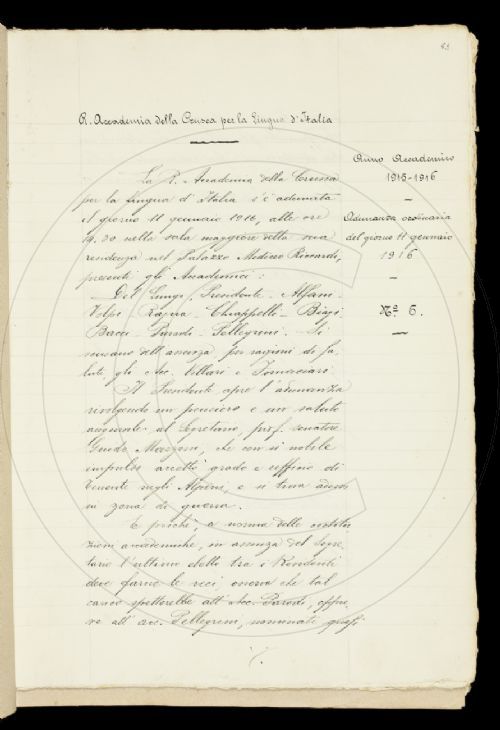 R. Accademia della Crusca per la Lingua d'Italia
Anno Accademico
1915-1916
Adunanza ordinaria
del giorno 11 gennaio
1916
No 6.
La R. Accademia della Crusca
per la lingua d'Italia s'è adunata
il giorno 11 gennaio 1916, alle ore
14.30 nella sala maggiore della sua
residenza nel Palazzo Mediceo Riccardi,
presenti gli Accademici:
Del Lungo, Presidente - Alfani -
Volpi - Rajna - Chiappelli - Biagi
Bacci - Parodi - Pellegrini. Si
scusano dell'assenza per ragioni di sa-
lute gli Acc. Villari e Tommasini.
Il Presidente apre l'adunanza
rivolgendo un pensiero e un saluto
augurale al Segretario, prof. senatore
Guido Mazzoni, che con sì nobile
impulso accettò grado e ufficio di
Tenente negli Alpini, e si trova adesso
in zona di guerra.
E poichè, a norma delle costitu-
zioni accademiche, in assenza del Segre-
tario l'ultimo eletto tra i Residenti
deve farne le veci, osserva che tal
carico spetterebbe all'Acc. Parodi, oppu-
re all'acc. Pellegrini, nominati quasi
./.